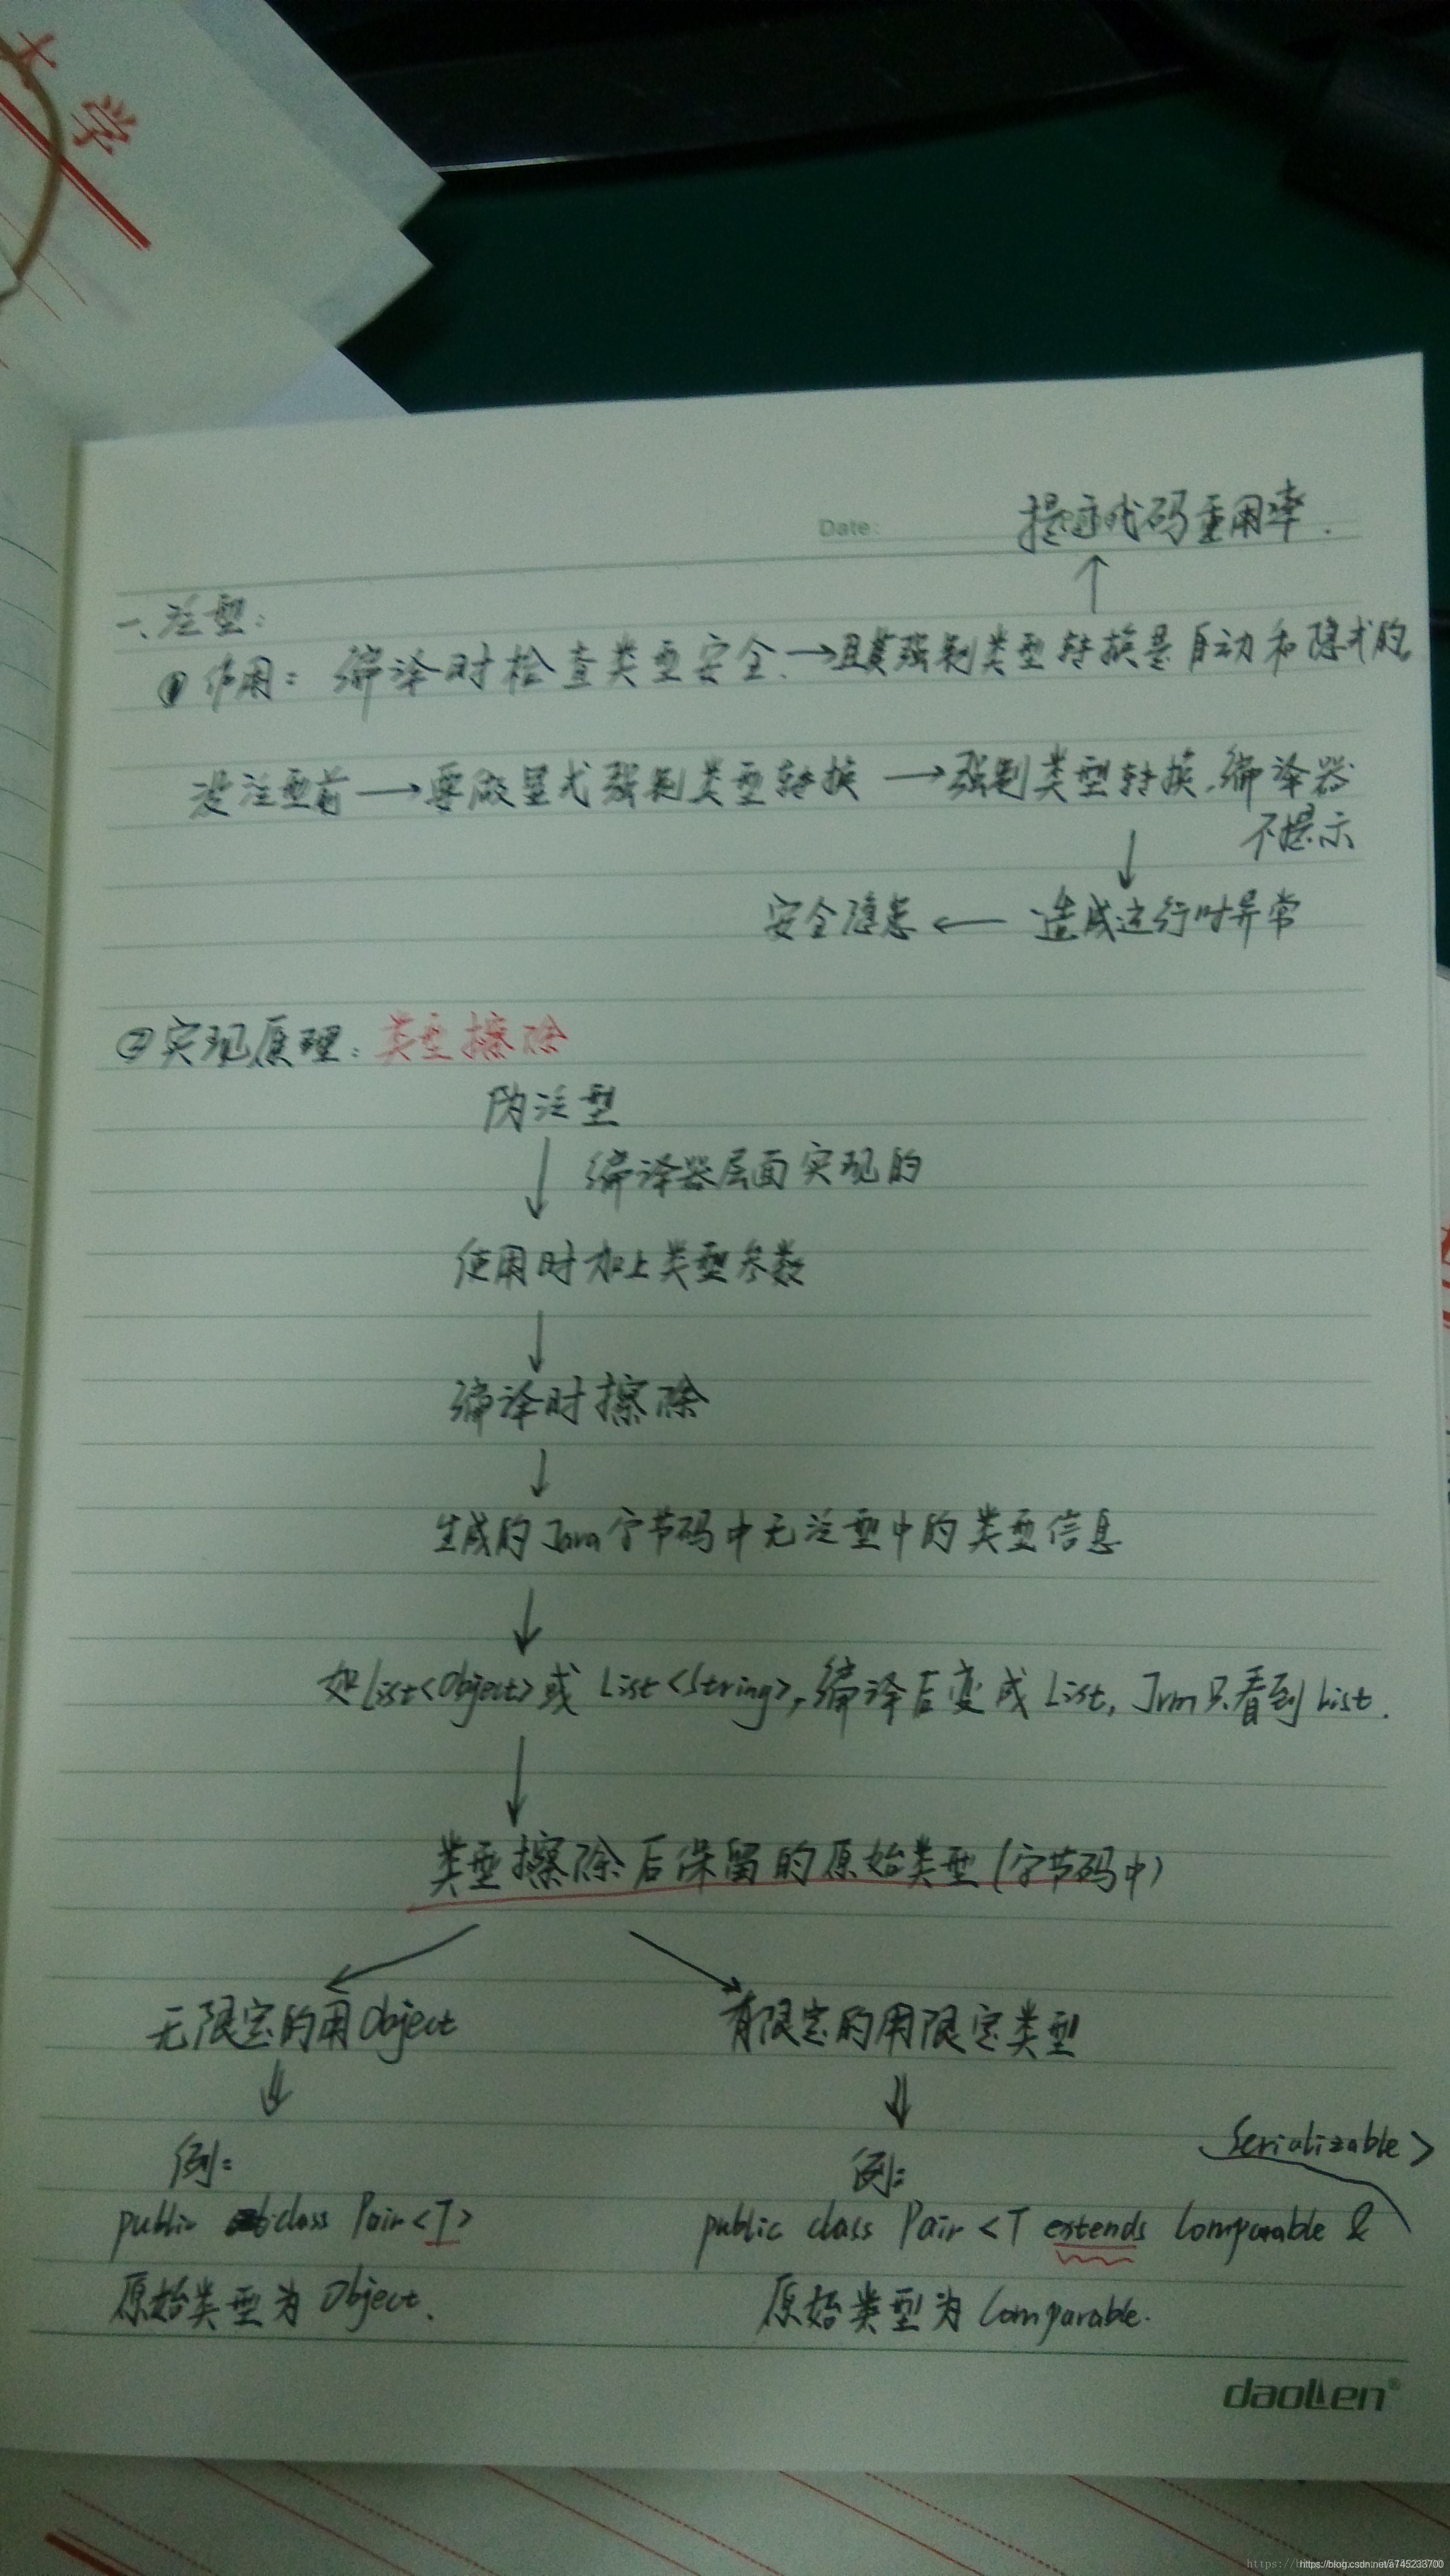 大学
Date:
提高代码重用率.
一、泛型:
①作用: 编译时检查类型安全.→且其强制类型转换是自动和隐式的
没泛型前→要做显式强制类型转换→强制类型转换,编译器
不提示
↓
安全隐患←造成运行时异常
②实现原理:类型擦除
伪泛型
↓编译器层面实现的
使用时加上类型参数
↓
编译时擦除
↓
生成的Java字节码中无泛型中的类型信息
↓
如List<Object>或List<String>,编译后变成List, Jvm只看到List.
↓
类型擦除后保留的原始类型(字节码中)
无限定的用Object 有限定的用限定类型
例: 例:
Serializable>
public class Pair<T> public class Pair<T extends Comparable &
原始类型为Object. 原始类型为Comparable.
daolien®
https://blog.csdn.net/a745233700